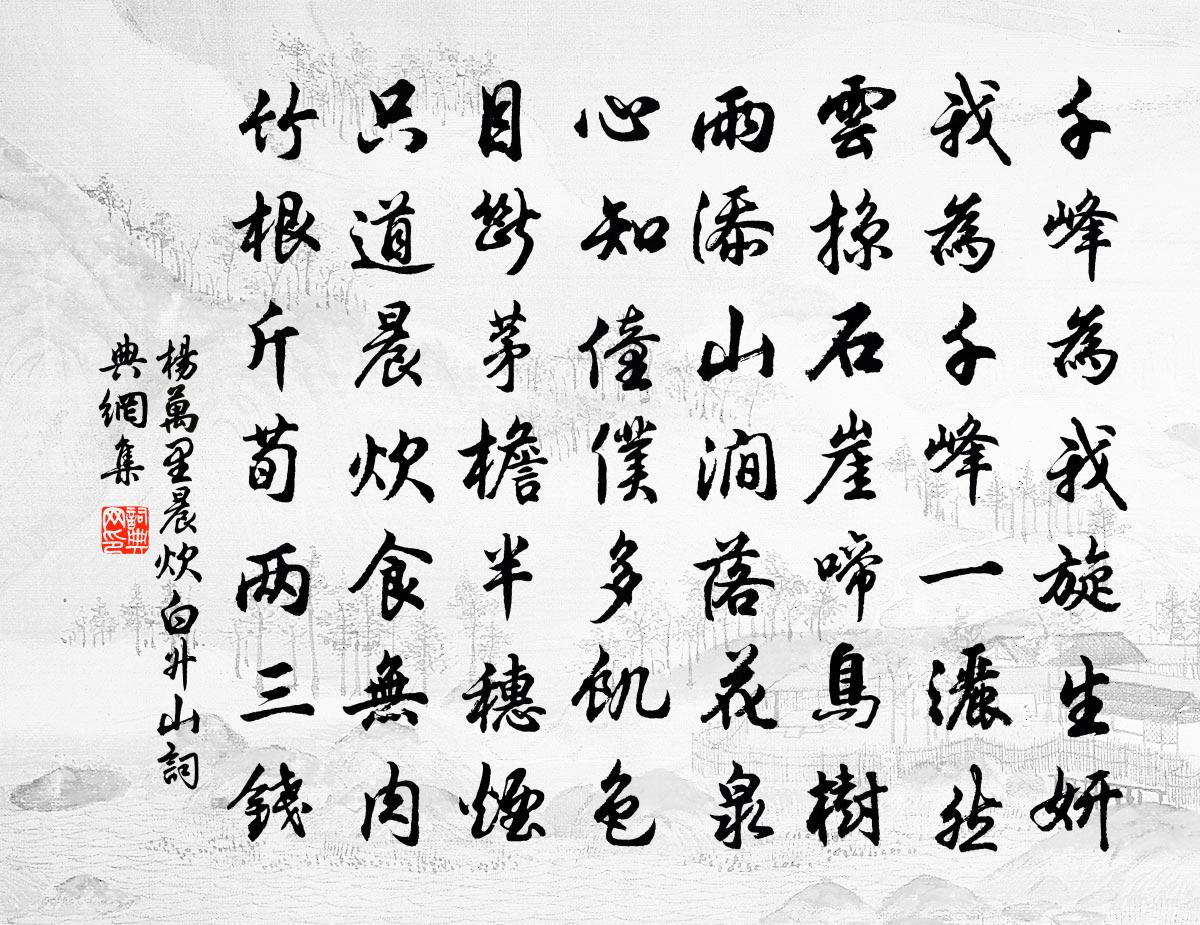 千峰為我旋生妍
我為千峰一灑然
雲掠石崖啼鳥樹
雨添山澗落花泉
心知僮僕多飢色
目斷茅檐半穗煙
只道晨炊食無肉
竹根斤荀两三錢
楊萬里晨炊白升山詞
典網集
詞典网印